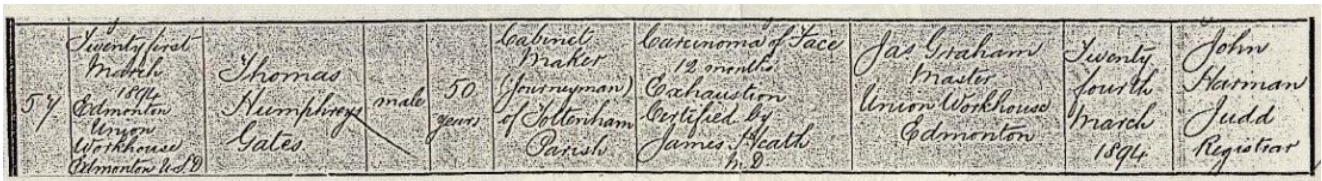 57
Twenty first
March
1894
Edmonton
Union
Workhouse
Edmonton U.S.D
Thomas
Humphreys
Gates
male
50
years
Cabinet
Maker
(Journeyman)
of Tottenham
Parish
Carcinoma of Face
12 months
Exhaustion
Certified by
James Heath
M.D
Jas. Graham
Master
Union Workhouse
Edmonton
Twenty
fourth
March
1894
John
Harman
Judd
Registrar